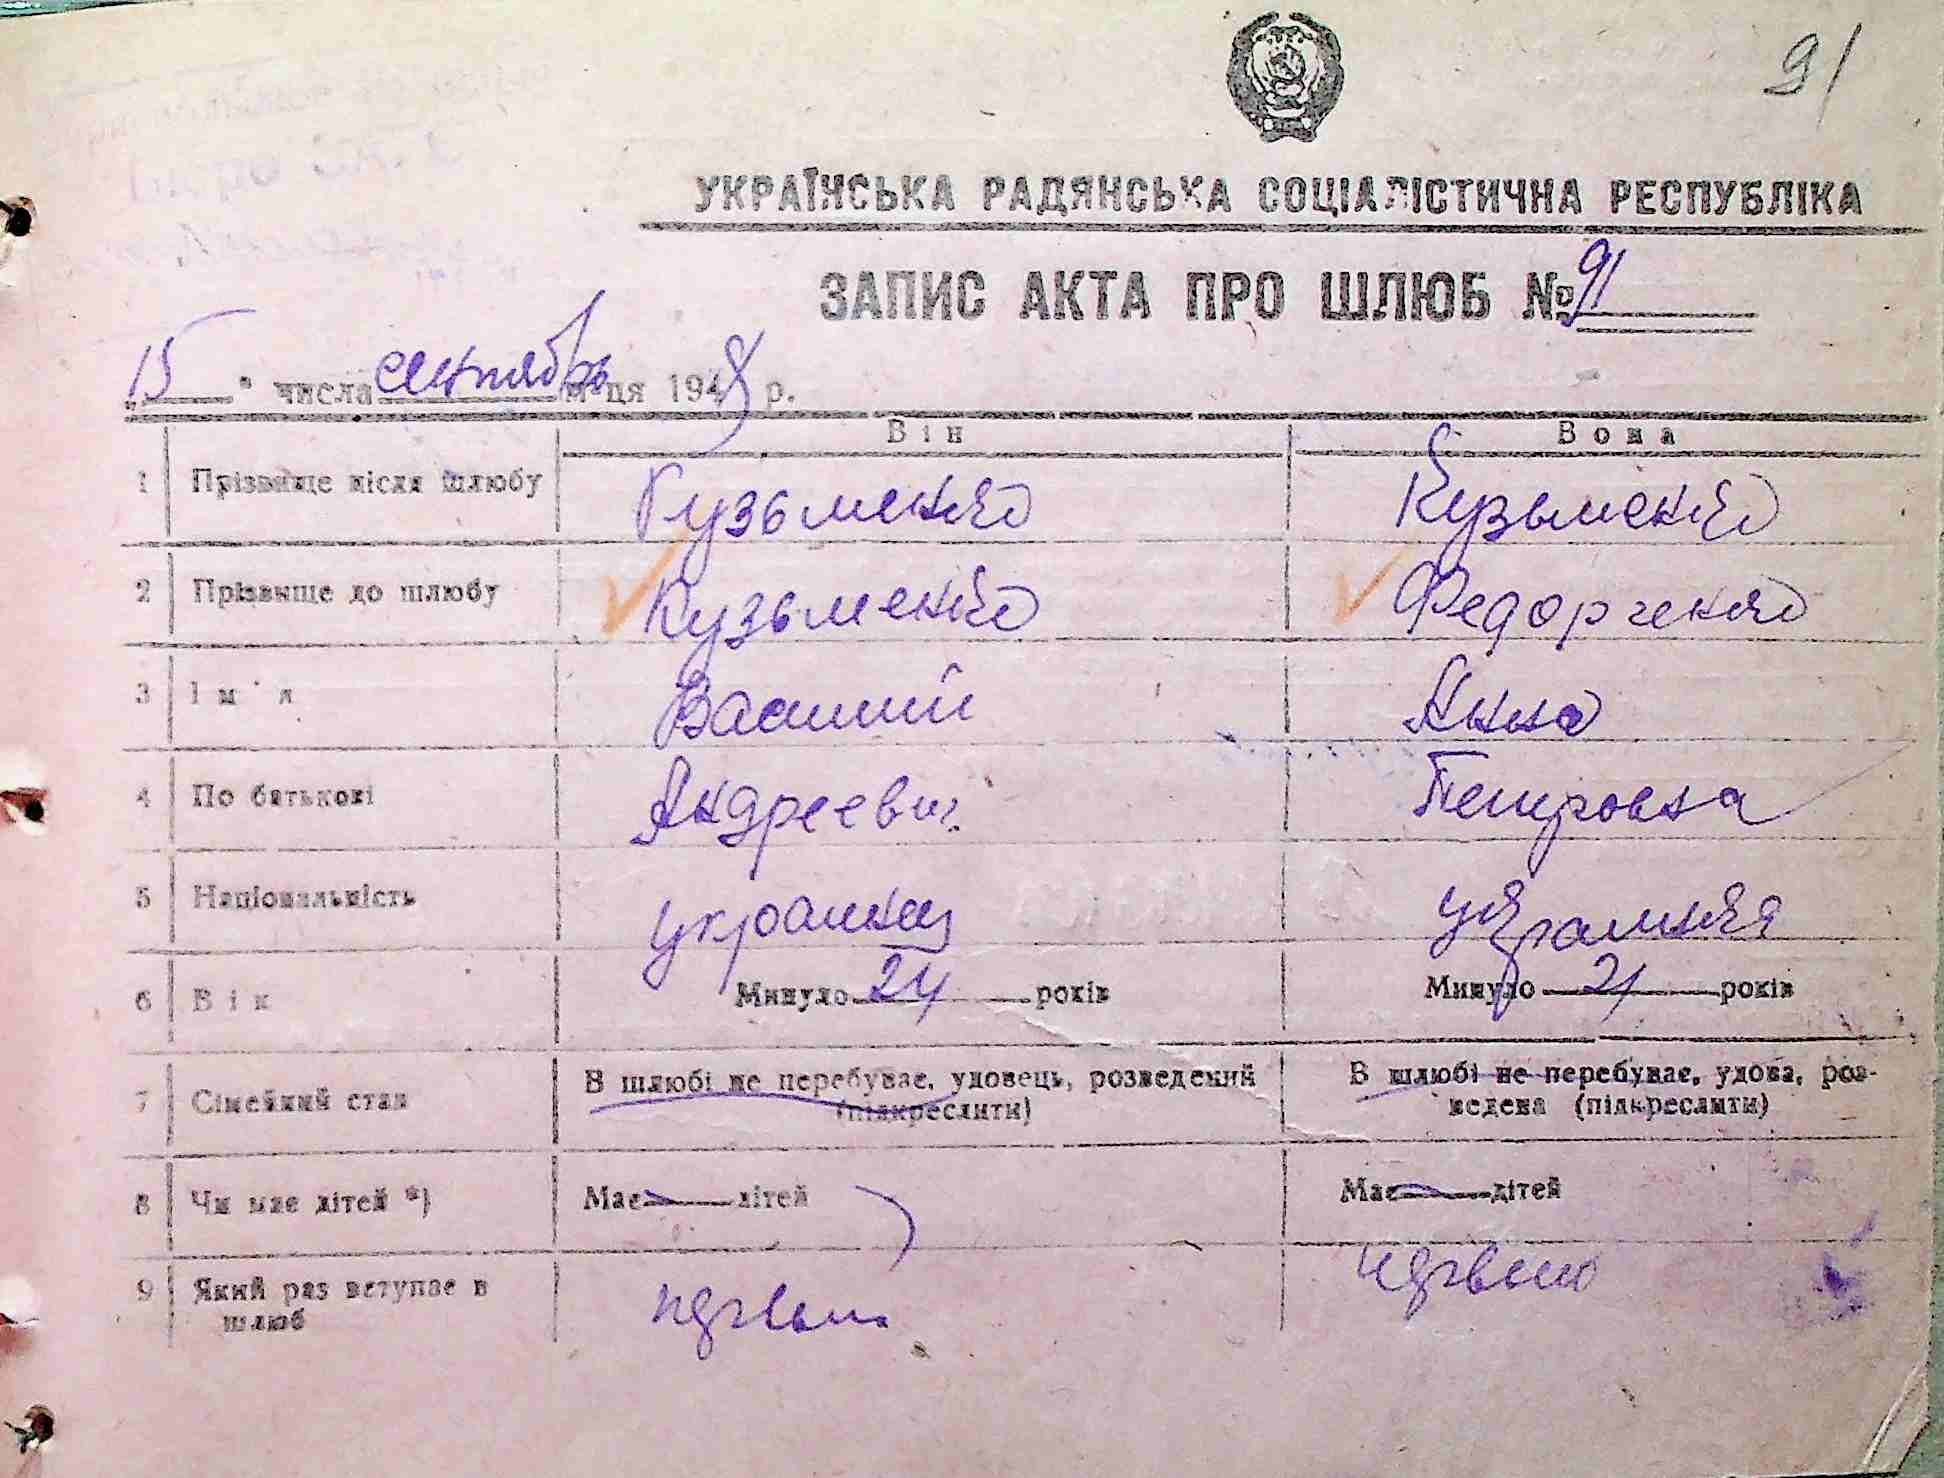 91
УКРАЇНСЬКА РАДЯНСЬКА СОЦІАЛІСТИЧНА РЕСПУБЛІКА
ЗАПИС АКТА ПРО ШЛЮБ № 91
„15" числа сентябрь м-ця 1948 р.
Він Вона
1 Прізвище після шлюбу Кузьменко Кузьменко
2 Прізвище до шлюбу Кузьменко Федорченко
3 Ім'я Василий Анна
4 По батькові Андреевич Петровна
5 Національність украинец украинка
6 Вік Минуло 24 років Минуло 21 років
7 Сімейний стан В шлюбі не перебуває, удовець, розведений (підкреслити) В шлюбі не перебуває, удова, роз-
ведена (підкреслити)
8 Чи має дітей *) Має — дітей Має — дітей
9 Який раз вступає в
шлюб